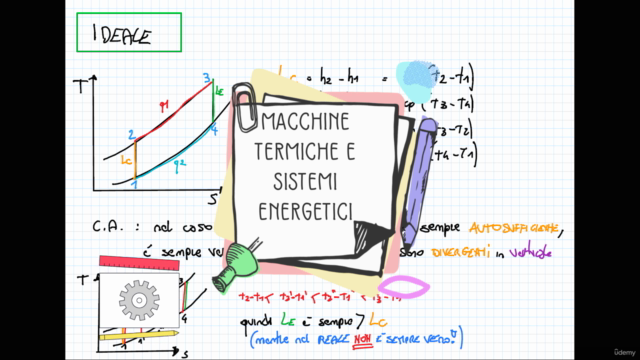 IDEALE
T
3
2
q1
LE
4
LC
q2
1
S
= h2 - h1 = (t2-t1)
(t3-t4)
(t3-t2)
(t4-t1)
MACCHINE
TERMICHE E
SISTEMI
ENERGETICI
C.A. : nel caso sempre AUTOSUFFICIENTE,
è sempre sono DIVERGENTI in verticale
T
3
4
S
quindi LE è sempre > LC
(mentre nel REALE NON È SEMPRE VERO!)
ûdemy